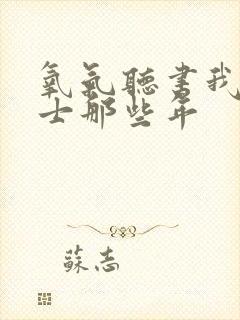 氧氣聽書我
士那些年
蘇志